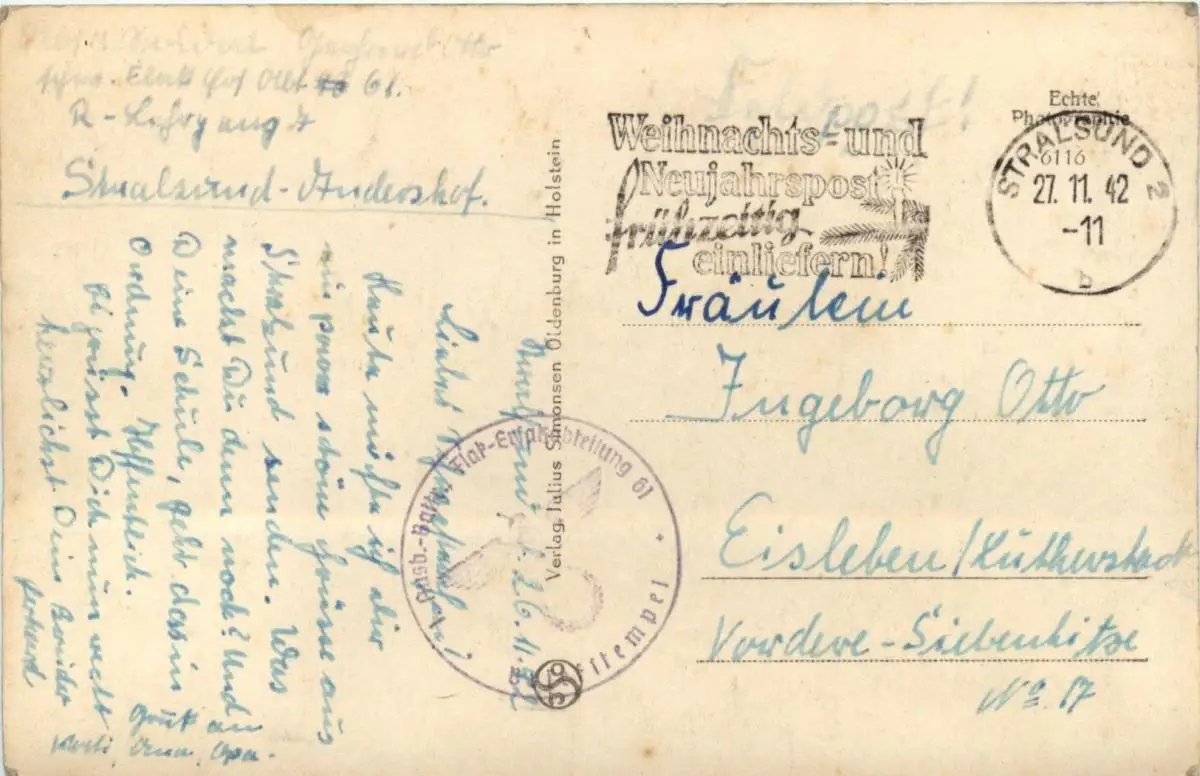 Otto
schw. Flak Ers Abt 61.
R-Lehrgang
Stralsund-Andershof.
Feldpost!
Weihnachts- und
Neujahrspost
frühzeitig
einliefern!
Echte
Photographie
STRALSUND 2
6116
27.11.42
-11
b
Fräulein
Ingeborg Otto
Eisleben/Lutherstadt
Vordere-Siebenhitze
No 17
Verlag Julius Simonsen Oldenburg in Holstein
Flak-Ersatzabteilung 61
26.11.42
Liebes
Heute möchte ich dir
ein paar schöne Grüsse aus
Stralsund senden. Was
machst Du denn noch? Und
Deine Schule, geht das in
Ordnung. Hoffentlich.
Es grüsst Dich nun recht
herzlichst Dein Bruder
Gerhard
Gruß an
Oma, Opa.